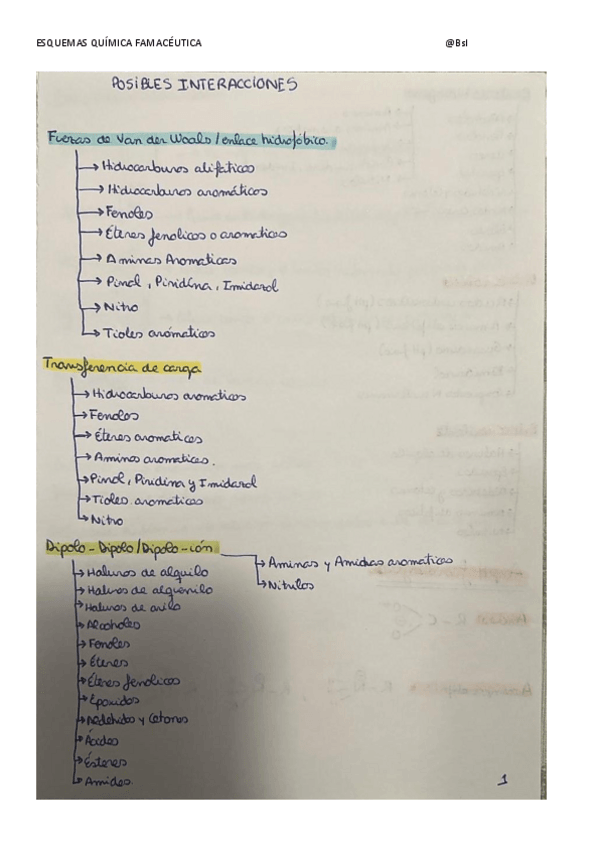 ESQUEMAS QUÍMICA FAMACÉUTICA @BsI
POSIBLES INTERACCIONES
Fuerzas de Van der Waals / enlace hidrofóbico.
→ Hidrocarburos alifáticos
→ Hidrocarburos aromáticos
→ Fenoles
→ Éteres fenolicos o aromaticos
→ Aminas Aromaticas
→ Pirrol, Piridina, Imidazol
→ Nitro
→ Tioles arómaticos
Transferencia de carga
→ Hidrocarburos aromaticos
→ Fenoles
→ Éteres aromaticos
→ Aminas aromaticas.
→ Pirrol, Piridina y Imidazol
→ Tioles aromáticos
→ Nitro
Dipolo - Dipolo / Dipolo - ión
→ Haluros de alquilo
→ Haluros de alquenilo
→ Haluros de arilo
→ Alcoholes
→ Fenoles
→ Éteres
→ Éteres fenolicos
→ Epoxidos
→ Aldehidos y Cetonas
→ Ácidos
→ Ésteres
→ Amidas.
→ Aminas y Amidas aromaticas
→ Nitrilos
1